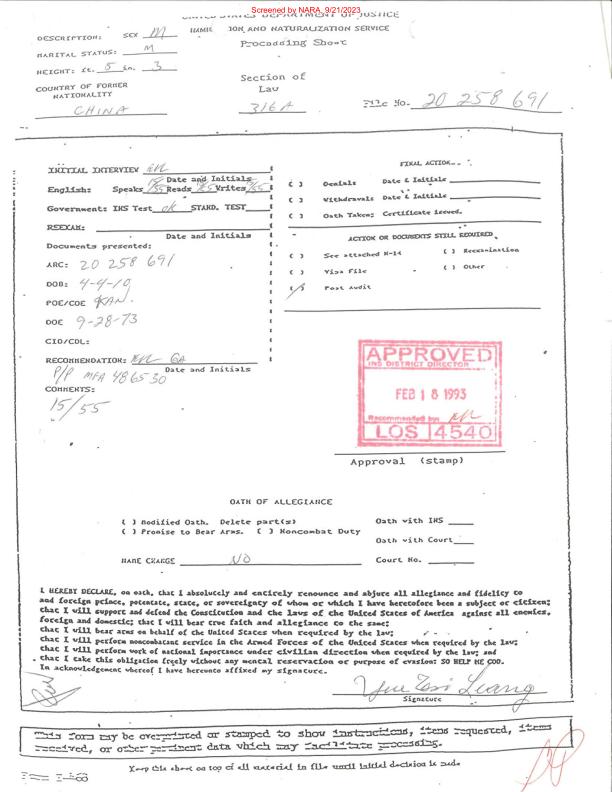 Screened by NARA, 9/21/2023
UNITED STATES DEPARTMENT OF JUSTICE
NAME ION AND NATURALIZATION SERVICE
DESCRIPTION: SEX M
Processing Sheet
MARITAL STATUS: M
HEIGHT: ft. 5 in. 3
COUNTRY OF FORMER NATIONALITY
CHINA
Section of Law
316A
File No. 20 258 691
INITIAL INTERVIEW
Date and Initials
English: Speaks Reads Writes
Government: INS Test ok STAND. TEST
REEXAM:
Date and Initials
Documents presented:
ARC: 20 258 691
DOB: 4-4-10
POE/COE
DOE 9-28-73
CIO/CDL:
RECOMMENDATION: GA
Date and Initials
P/P MFA 486530
COMMENTS:
15/55
FINAL ACTION
( ) Denials Date & Initials
( ) Withdrawals Date & Initials
( ) Oath Taken; Certificate issued.
ACTION OR DOCUMENTS STILL REQUIRED
( ) See attached N-14 ( ) Reexamination
( ) Visa File ( ) Other
(/) Post Audit
APPROVED
INS DISTRICT DIRECTOR
FEB 18 1993
Recommended by:
LOS 4540
Approval (stamp)
OATH OF ALLEGIANCE
( ) Modified Oath. Delete part(s) Oath with INS
( ) Promise to Bear Arms. ( ) Noncombat Duty
Oath with Court
NAME CHANGE NO Court No.
I HEREBY DECLARE, on oath, that I absolutely and entirely renounce and abjure all allegiance and fidelity to
and foreign prince, potentate, state, or sovereignty of whom or which I have heretofore been a subject or citizen;
that I will support and defend the Constitution and the laws of the United States of America against all enemies,
foreign and domestic; that I will bear true faith and allegiance to the same;
that I will bear arms on behalf of the United States when required by the law;
that I will perform noncombatant service in the Armed Forces of the United States when required by the law;
that I will perform work of national importance under civilian direction when required by the law; and
that I take this obligation freely without any mental reservation or purpose of evasion: SO HELP ME GOD.
In acknowledgement whereof I have hereunto affixed my signature.
Yue Tsi Leang
Signature
This form may be overprinted or stamped to show instructions, items requested, items
received, or other pertinent data which may facilitate processing.
Keep this sheet on top of all material in file until initial decision is made